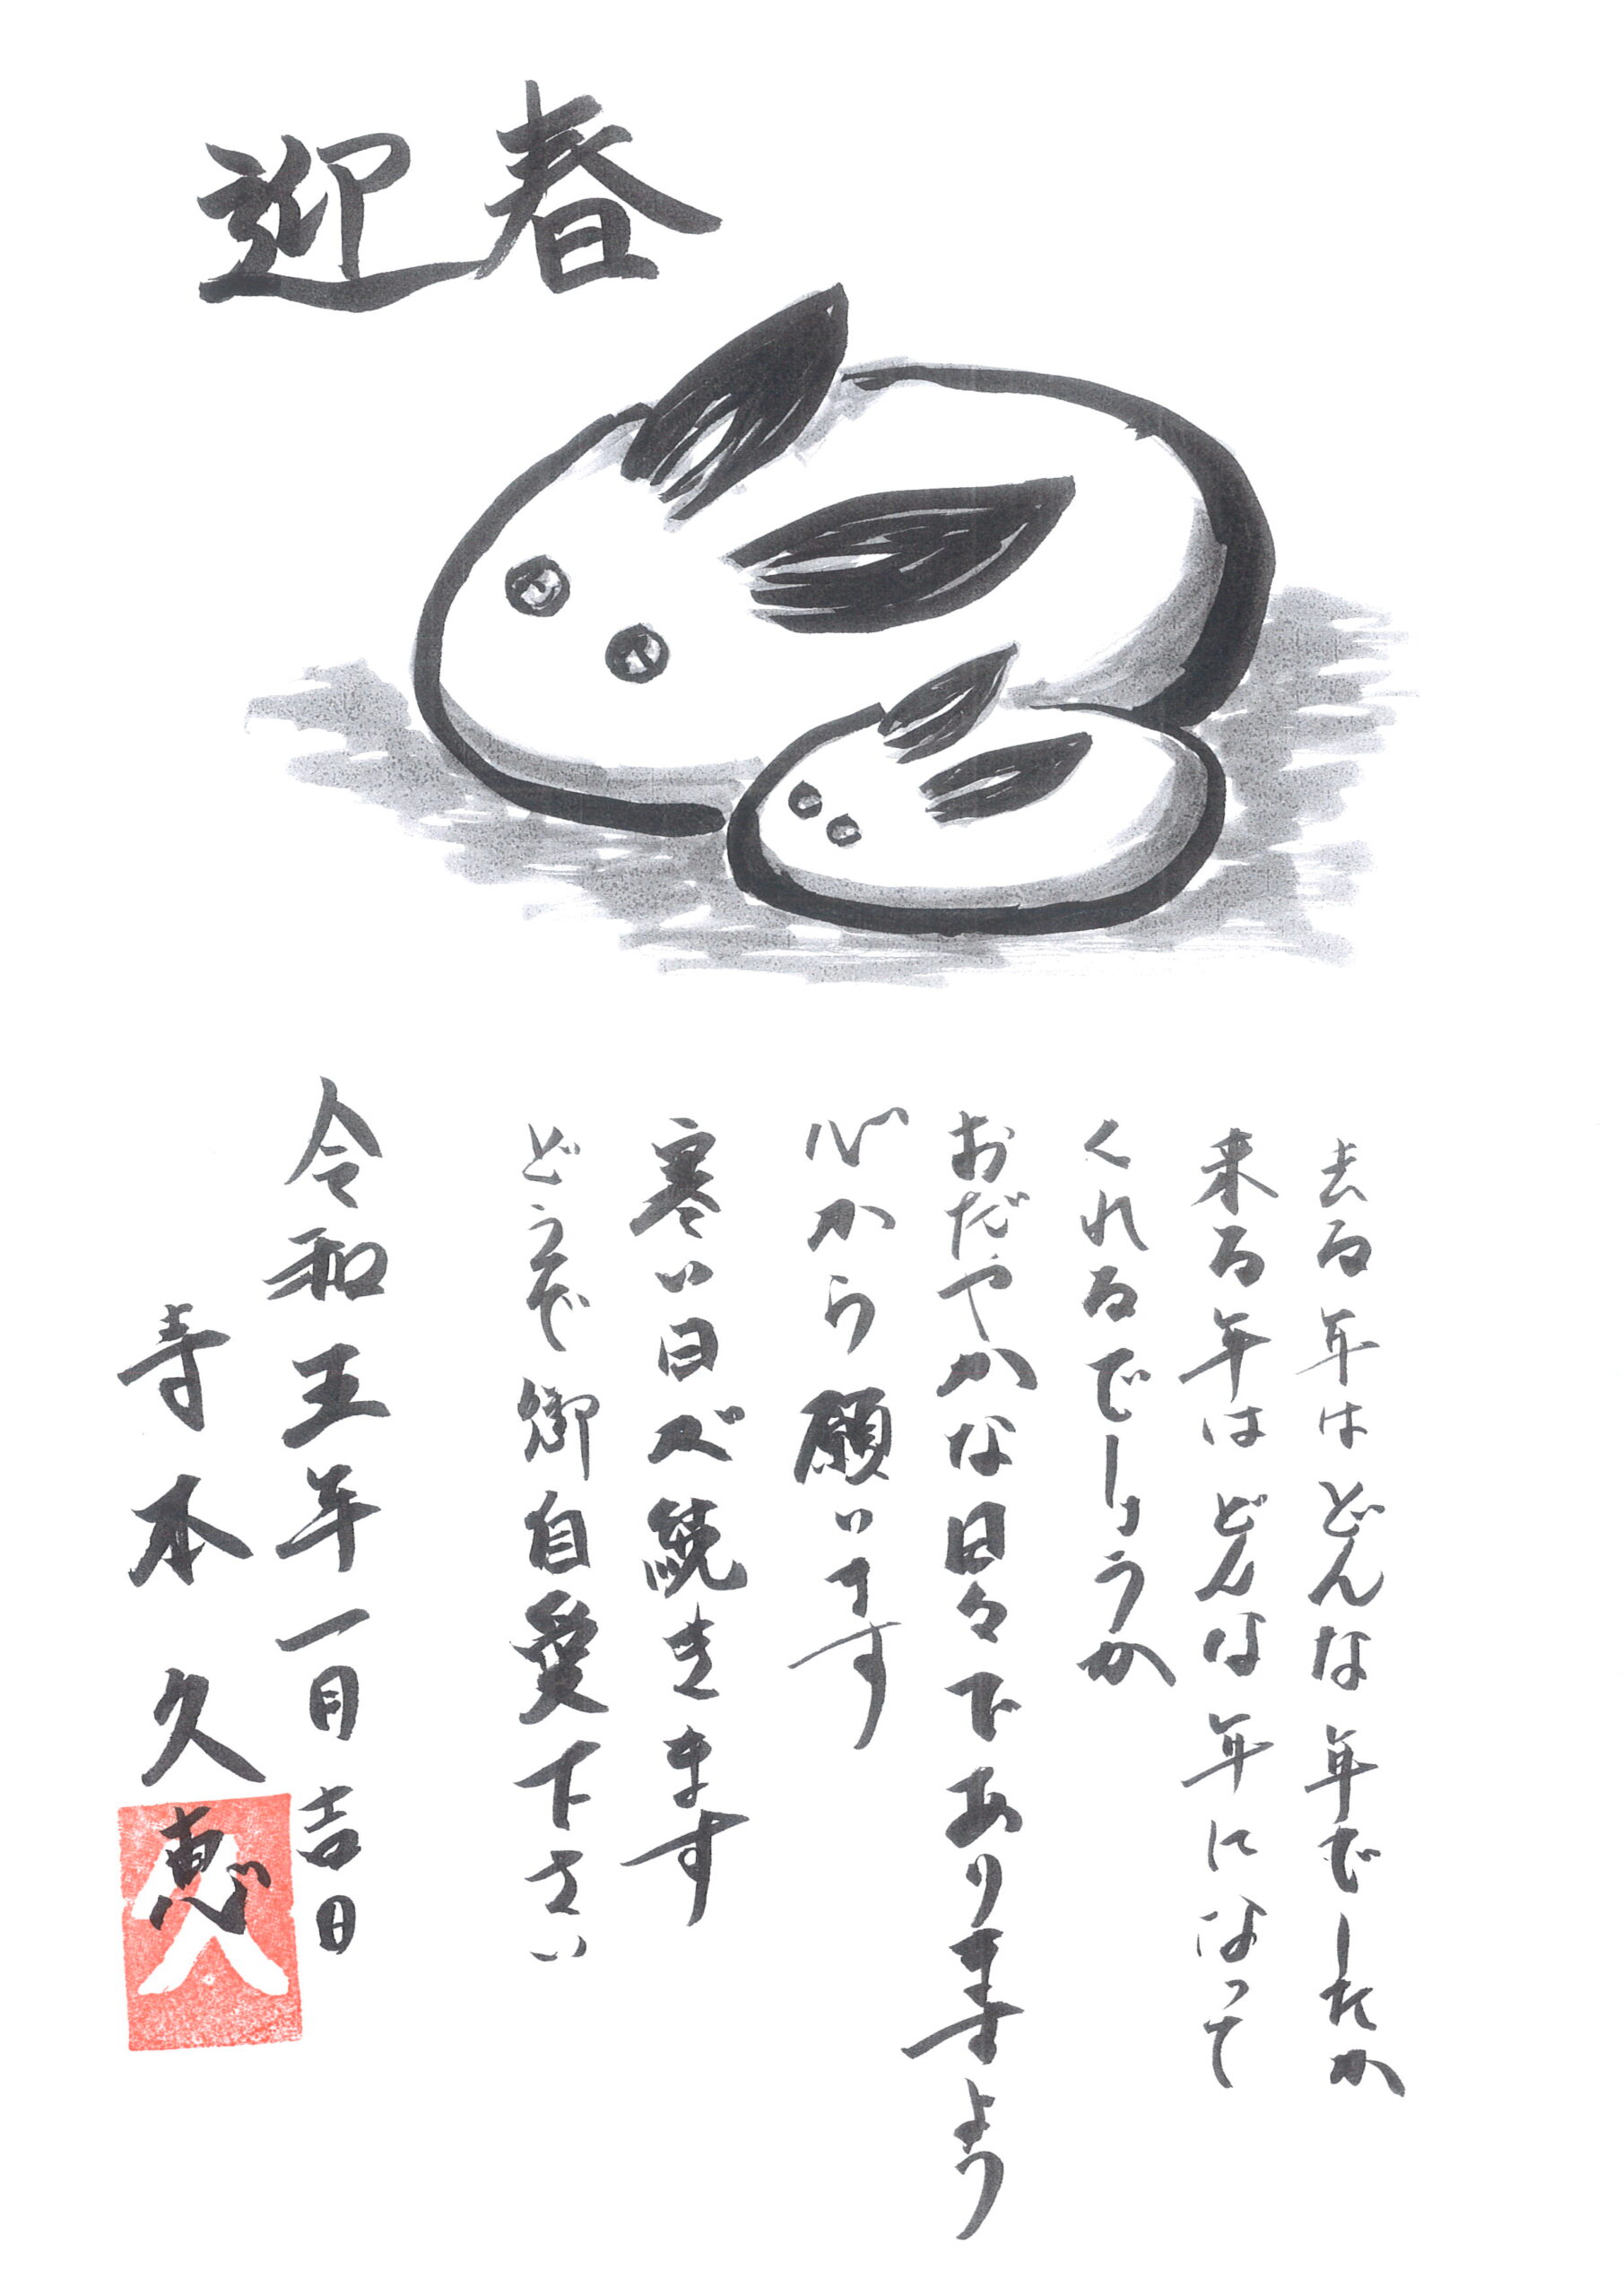 迎春
去る年はどんな年でしたか
来る年はどんな年になって
くれるでしょうか
おだやかな日々でありますよう
心から願います
寒い日が続きます
どうぞ御自愛下さい
令和五年一月吉日
寺本久恵
久